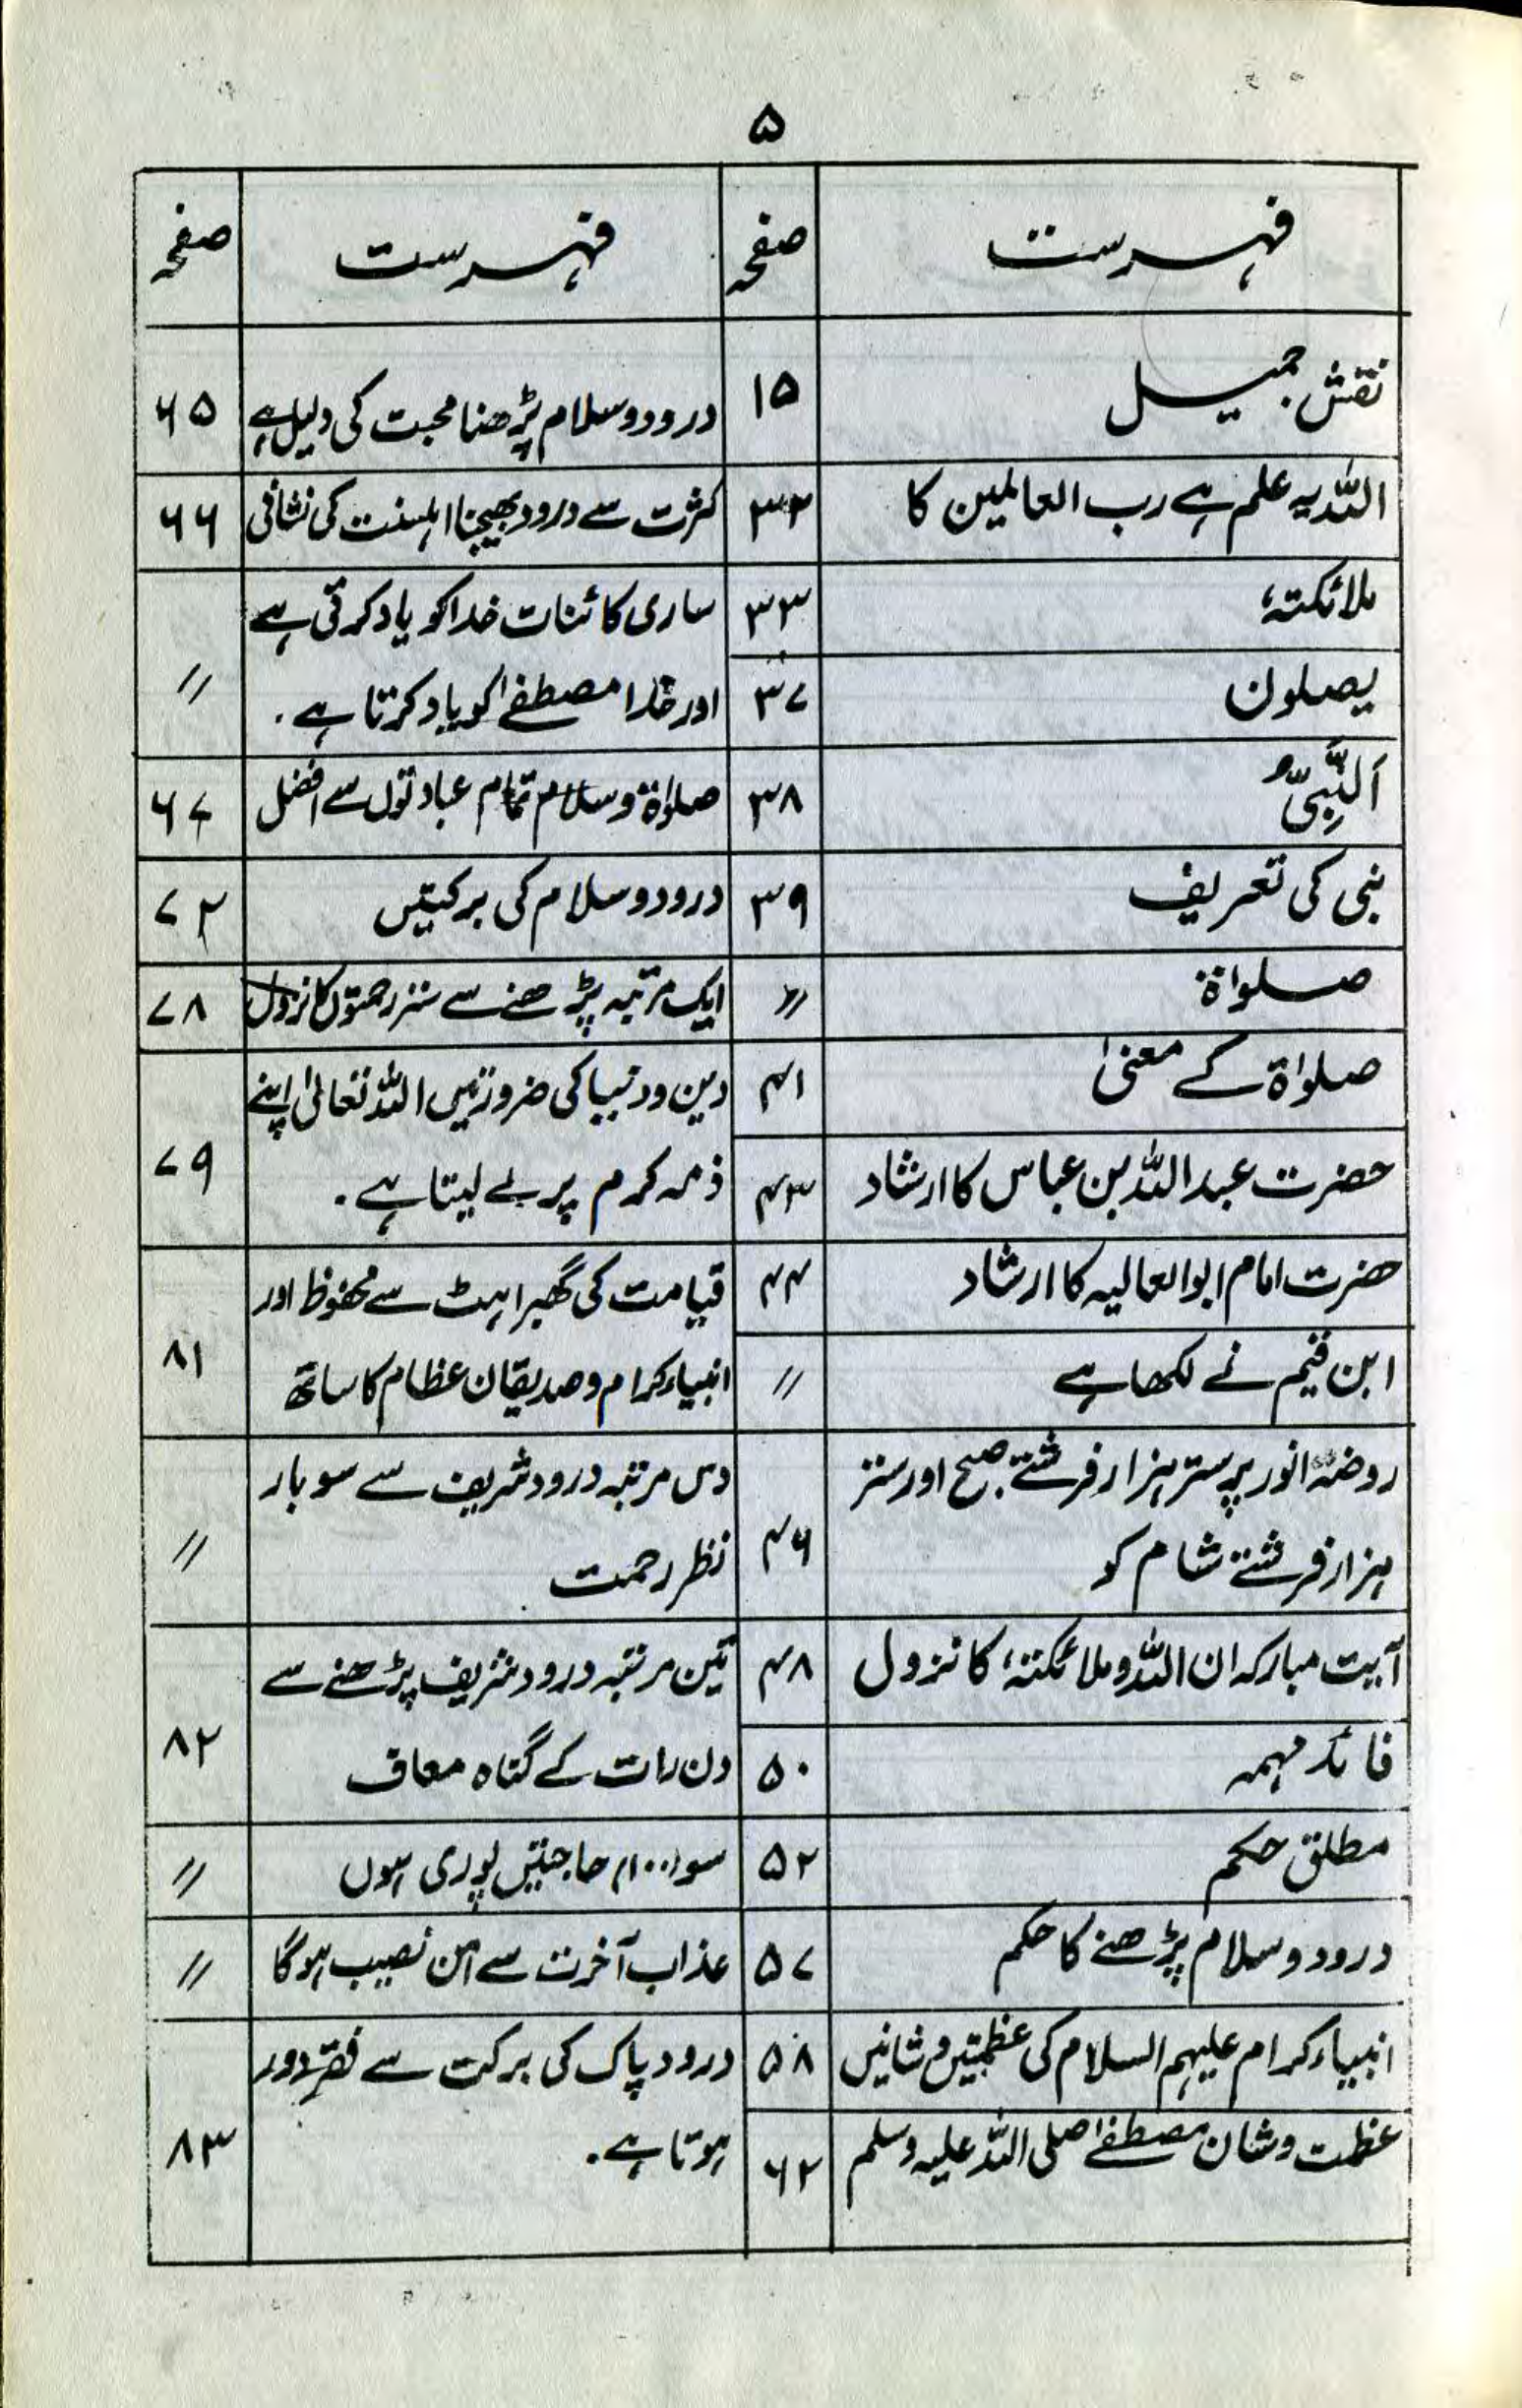 ۵
فہرست صفحہ
نقش جمیل ۱۵
اللہ یہ علم ہے رب العالمین کا ۳۲
ملائکتہٗ ۳۳
یصلون ۳۷
اَلنَّبِیِّ ۳۸
نبی کی تعریف ۳۹
صلواۃ 〃
صلواۃ کے معنیٰ ۴۱
حضرت عبداللہ بن عباس کا ارشاد ۴۳
حضرت امام ابوالعالیہ کا ارشاد ۴۴
ابن قیم نے لکھا ہے 〃
روضۂ انور پر ستر ہزار فرشتے صبح اور ستر
ہزار فرشتے شام کو ۴۶
آیت مبارکہ ان اللہ و ملائکتہٗ کا نزول ۴۸
فائدہ مہمہ ۵۰
مطلق حکم ۵۲
درود و سلام پڑھنے کا حکم ۵۷
انبیاء کرام علیہم السلام کی عظمتیں و شانیں ۵۸
عظمت و شان مصطفےٰ صلی اللہ علیہ وسلم ۶۲
فہرست صفحہ
درود و سلام پڑھنا محبت کی دلیل ہے ۶۵
کثرت سے درود بھیجنا اہلسنت کی نشانی ۶۶
ساری کائنات خدا کو یاد کرتی ہے
اور خدا مصطفےٰ کو یاد کرتا ہے۔ 〃
صلواۃ و سلام تمام عبادتوں سے افضل ۶۷
درود و سلام کی برکتیں ۷۲
ایک مرتبہ پڑھنے سے ستر رحمتوں کا نزول ۷۸
دین و دنیا کی ضرورتیں اللہ تعالیٰ اپنے
ذمہ کرم پر لے لیتا ہے۔ ۷۹
قیامت کی گھبراہٹ سے محفوظ اور
انبیاء کرام و صدیقان عظام کا ساتھ ۸۱
دس مرتبہ درود شریف سے سو بار
نظر رحمت 〃
تین مرتبہ درود شریف پڑھنے سے
دن رات کے گناہ معاف ۸۲
سو (۱۰۰) حاجتیں پوری ہوں 〃
عذاب آخرت سے امن نصیب ہوگا 〃
درود پاک کی برکت سے فقر دور
ہوتا ہے۔ ۸۳